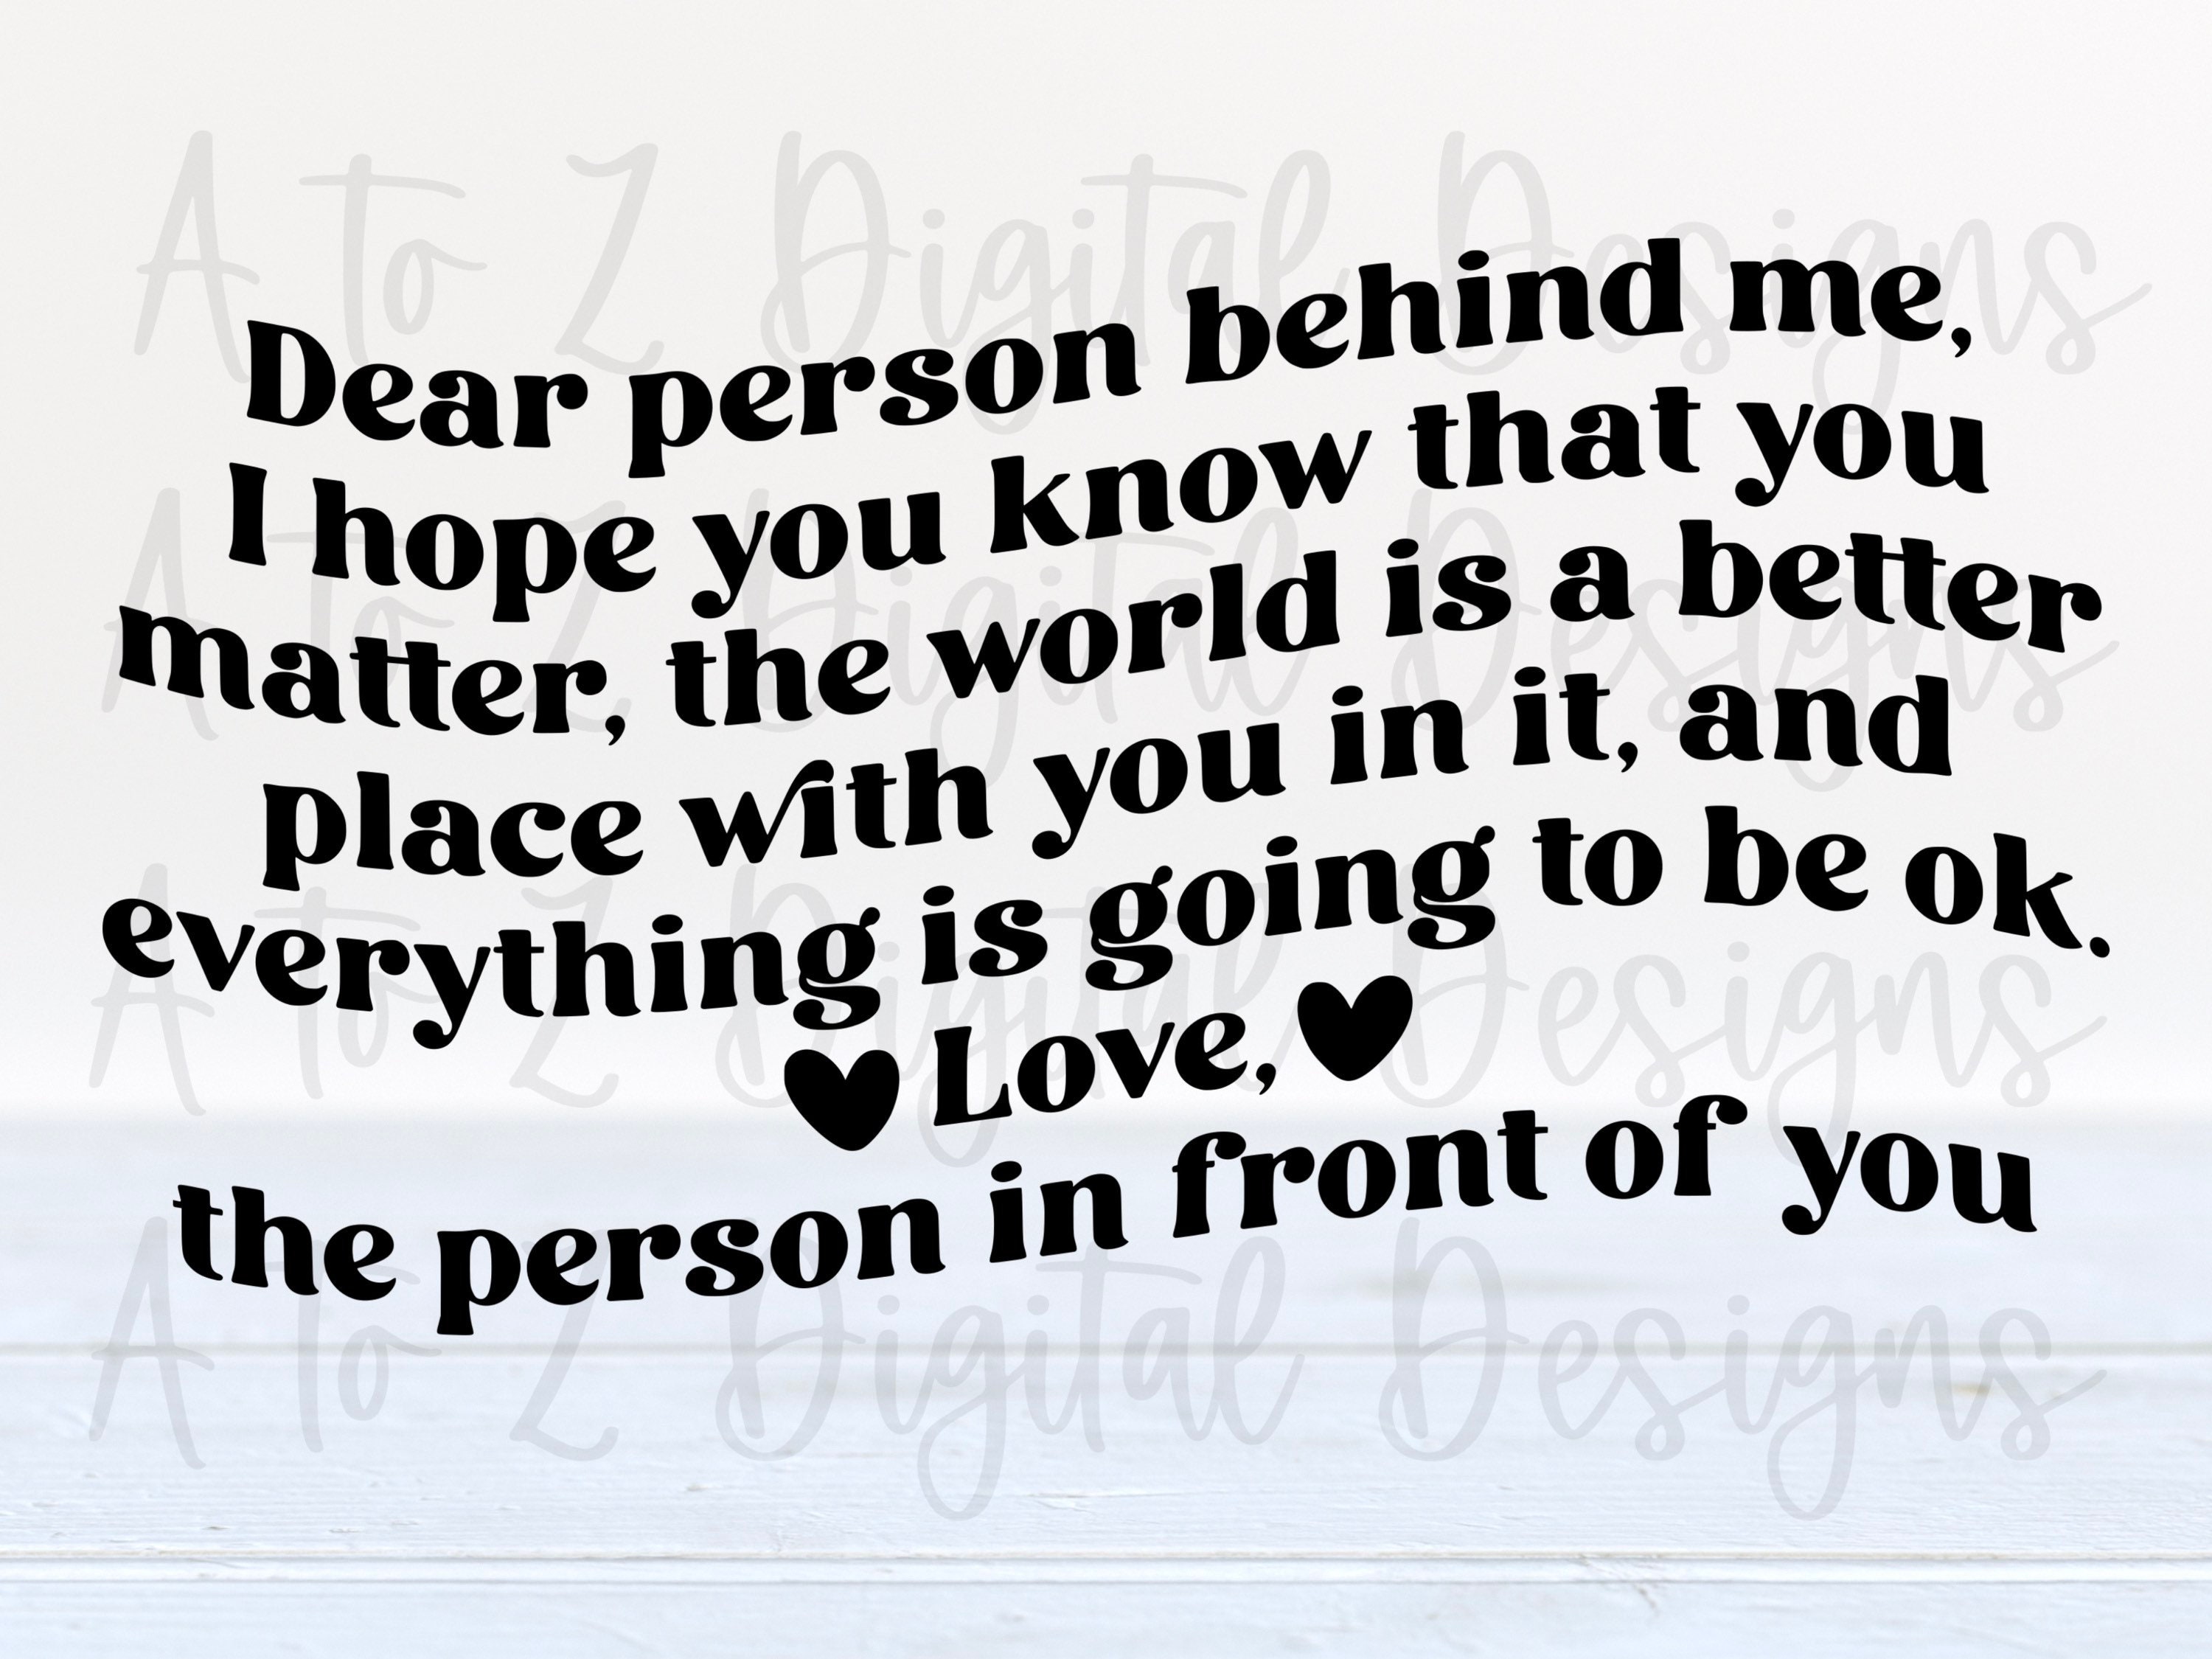 A to Z Digital Designs
Dear person behind me,
I hope you know that you
A to Z Digital Designs
matter, the world is a better
place with you in it, and
A to Z Digital Designs
everything is going to be ok.
♥ Love, ♥
the person in front of you
A to Z Digital Designs